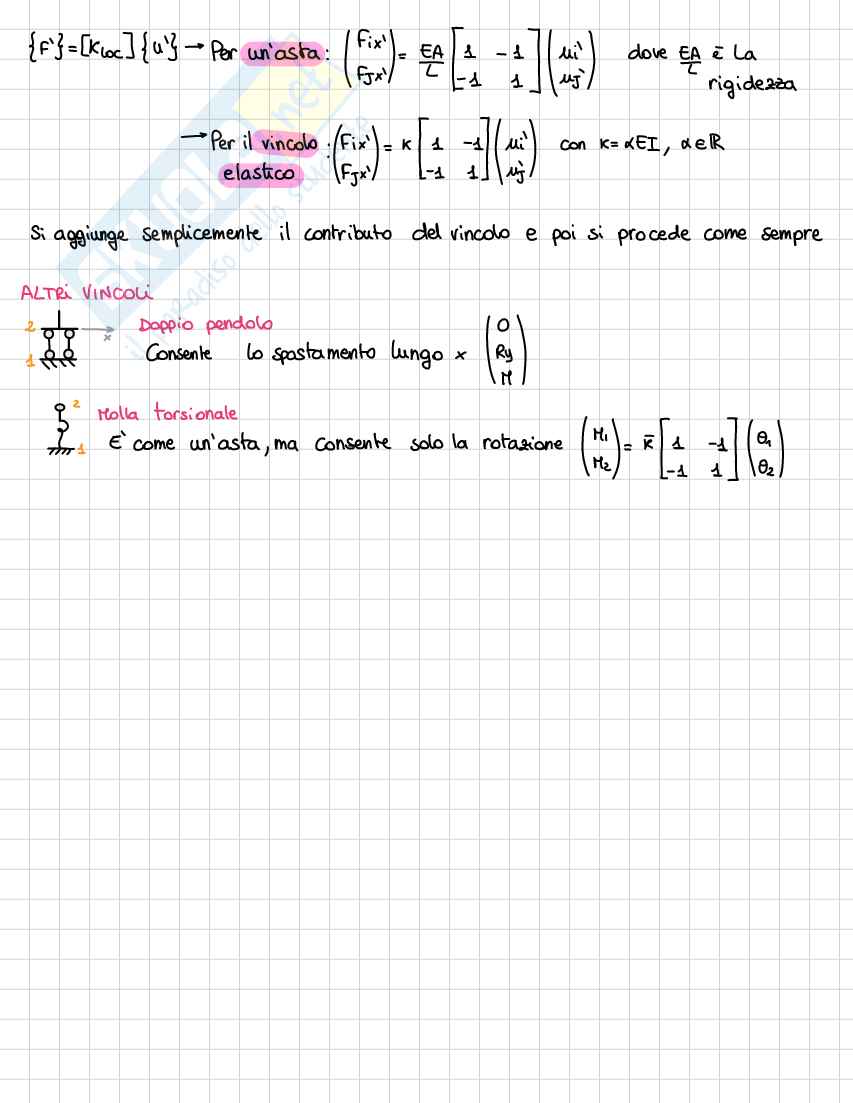 {F'}=[Kloc]{u'} → Per un'asta: (Fix' Fjx') = EA/L [1 -1 -1 1] (ui' uj') dove EA/L è la rigidezza
→ Per il vincolo elastico: (Fix' Fjx') = K [1 -1 -1 1] (ui' uj') con K= αEI, α∈ℝ
Si aggiunge semplicemente il contributo del vincolo e poi si procede come sempre
ALTRI VINCOLI
2 1 x
Doppio pendolo
Consente lo spostamento lungo x (0 Ry M)
2 1
Molla torsionale
E' come un'asta, ma consente solo la rotazione (M1 M2) = K̄ [1 -1 -1 1] (θ1 θ2)
skuola.net
il paradiso dello studente